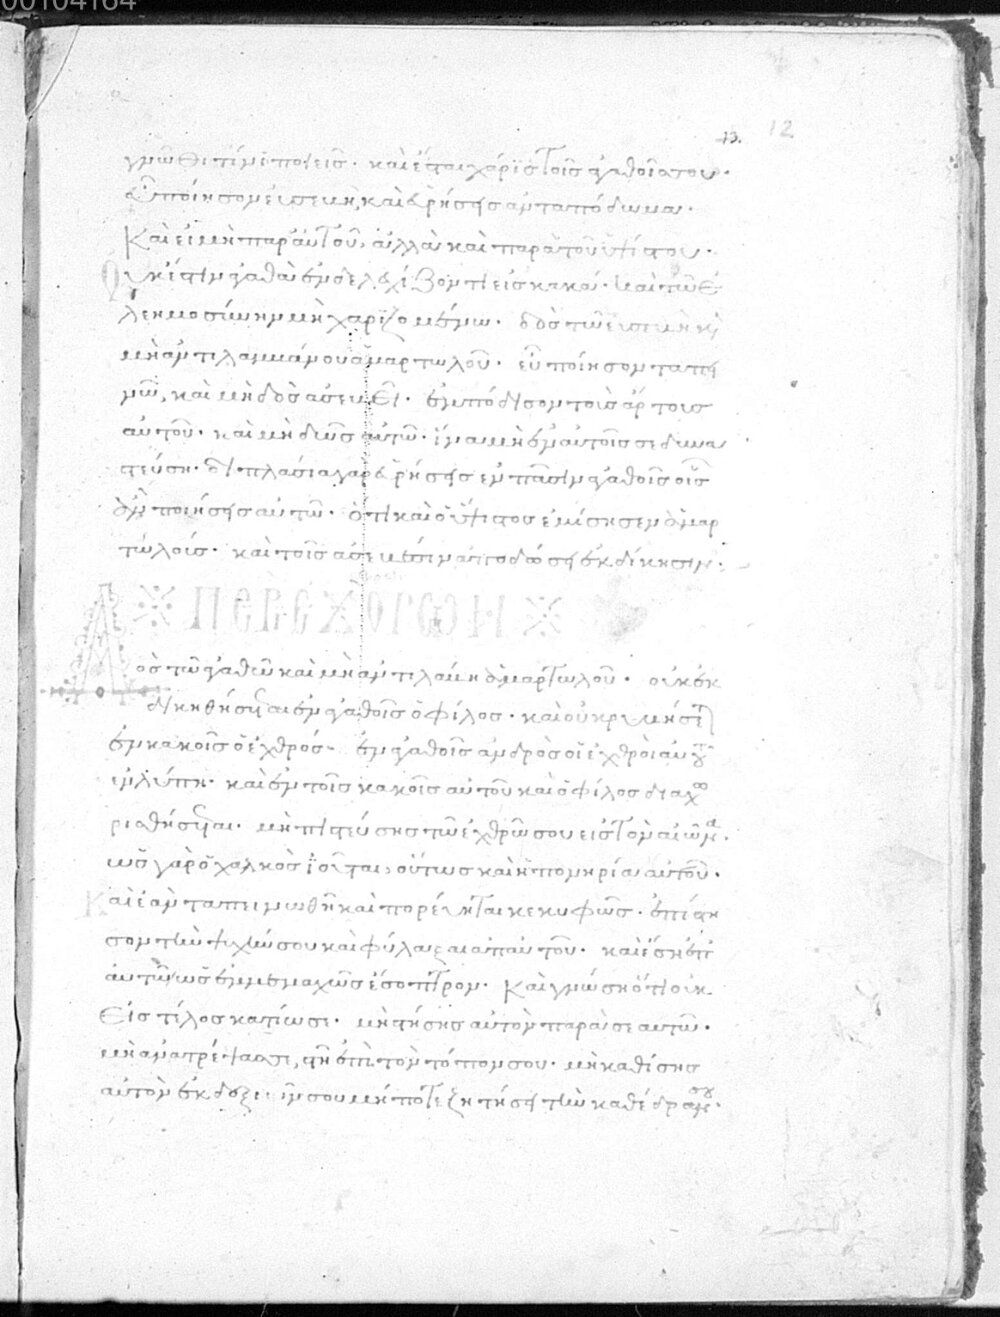 00104164
13. 12
γνῶθι τίνι ποιεῖς· καὶ ἔσται χάρις τοῖς ἀγαθοῖς σου·
εὖ ποίησον εὐσεβῆ, καὶ εὑρήσεις ἀνταπόδωμα·
Καὶ εἰ μὴ παρ αὐτοῦ, ἀλλὰ καὶ παρὰ τοῦ ὑψίστου·
Οὐκ ἔστιν ἀγαθὰ ἐνδελεχίζοντι εἰς κακά· καὶ τῶ ἐ
λεημοσύνην μὴ χαριζομένω· δὸς τῶ εὐσεβῆ κὶ
μὴ ἀντιλαμμάνου ἁμαρτωλοῦ· εὖ ποίησον ταπει
νῶ, καὶ μὴ δὸς ἀσεβεῖ· ἐμπόδισον τοὺς ἄρτους
αὐτοῦ· καὶ μὴ δῶς αὐτῶ· ἵνα μὴ ἐν αὐτοῖς σε δυνα
στεύση· διπλάσια γὰρ εὑρήσεις ἐν πᾶσιν ἀγαθοῖς οἷς
ἂν ποιήσεις αὐτῶ· ὅτι καὶ ὁ ὕψιστος ἐμίσησεν ἁμαρ
τωλούς· καὶ τοῖς ἀσεβέσιν ἀποδώσει ἐκδίκησιν·
Δὸς τῶ ἀγαθῶ καὶ μὴ ἀντιλάβη ἁμαρτωλοῦ· οὐκ ἐκ
δικηθήσεται ἐν ἀγαθοῖς ὁ φίλος· καὶ οὐ κρυβήσεται
ἐν κακοῖς ὁ ἐχθρός· ἐν ἀγαθοῖς ἀνδρὸς οἱ ἐχθροὶ αὐτοῦ
ἐν λύπη· καὶ ἐν τοῖς κακοῖς αὐτοῦ καὶ ὁ φίλος διαχω
ρισθήσεται· μὴ πιστεύσης τῶ ἐχθρῶ σου εἰς τὸν αἰῶνα·
ὡς γὰρ ὁ χαλκὸς ἰοῦται, οὕτως καὶ ἡ πονηρία αὐτοῦ·
Καὶ ἐὰν ταπεινωθῆ καὶ πορεύηται κεκυφῶς· ἐπίστη
σον τὴν ψυχήν σου καὶ φύλαξαι ἀπ αὐτοῦ· καὶ ἔση ἐπ
αὐτῶ ὡς ἐμμεμαχῶς ἔσοπτρον· Καὶ γνώση ὅτι οὐκ
Εἰς τέλος κατίωσε· μὴ στήσης αὐτὸν παρὰ σεαυτῶ·
μὴ ἀνατρέψας σε, στῆ ἐπὶ τὸν τόπον σου· μὴ καθίσης
αὐτὸν ἐκ δεξιῶν σου μήποτε ζητήσει τὴν καθέδραν σου·